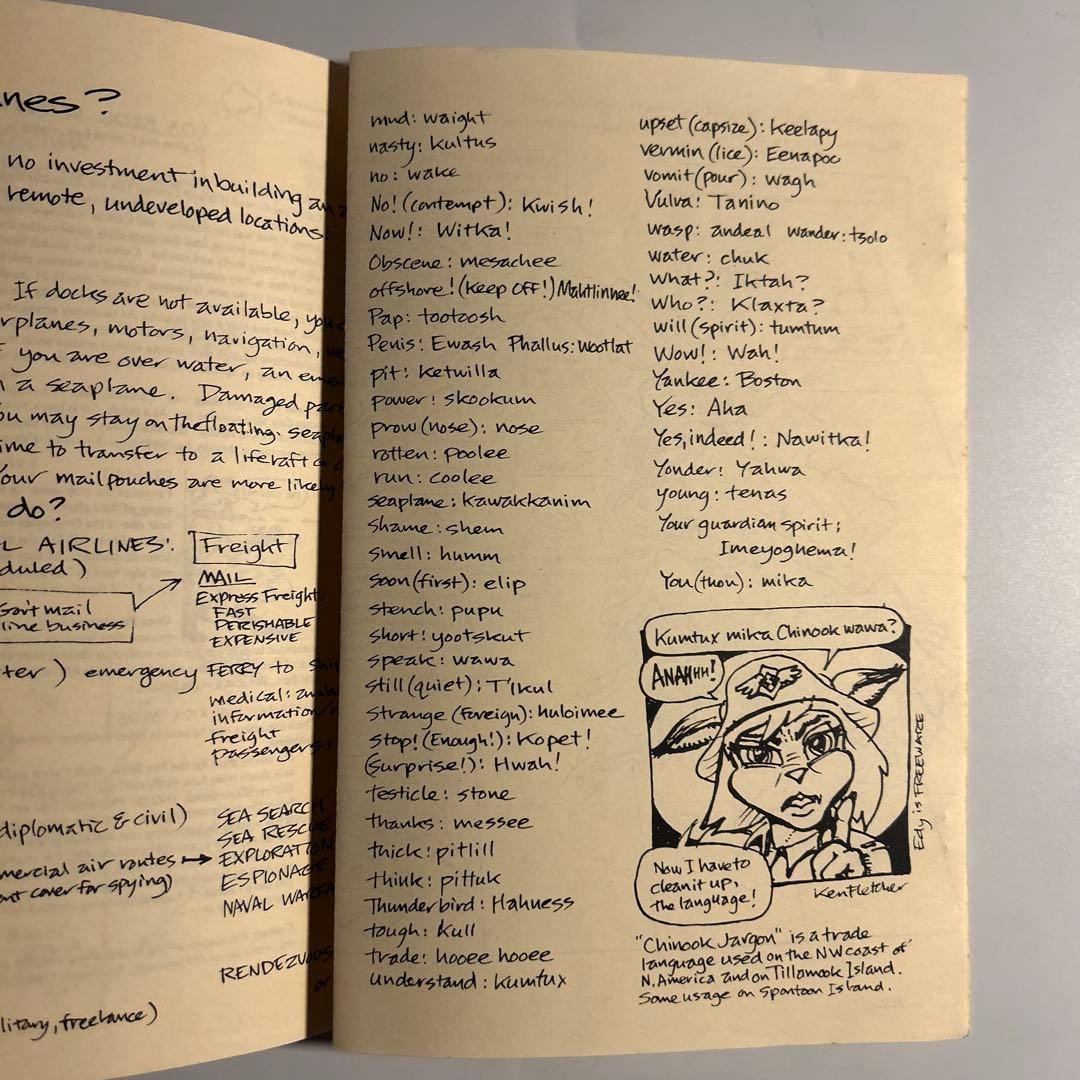 no investment in building an
remote, undeveloped locations:
If docks are not available, you
rplanes, motors, navigation,
you are over water, an eme
a seaplane. Damaged par
ou may stay on the floating seapl
ime to transfer to a liferaft or
Your mailpouches are more likely
do?
L AIRLINES'.
duled)
Gov't mail
line business
ter) emergency
diplomatic & civil)
mercial air routes →
ent cover for spying)
litary, freelance)
Freight
MAIL
Express Freight:
FAST
PERISHABLE
EXPENSIVE
FERRY to shi
medical: ambu
information/
freight
passengers,
SEA SEARCH
SEA RESCUE
EXPLORATION
ESPIONAGE
NAVAL WARFA
RENDEZVOUS
or
mud: waight
nasty: kultus
no: wake
No! (contempt): Kwish!
Now!: Witka!
Obscene: mesachee
offshore! (Keep OFF!) Mahtlinnee!
Pap: tootoosh
Penis: Ewash Phallus: wootlat
pit: ketwilla
power: skookum
prow (nose): nose
rotten: poolee
run: coolee
seaplane: kawakkanim
shame: shem
smell: humm
soon (first): elip
stench: pupu
short: yootskut
speak: wawa
still (quiet): T'lkul
strange (foreign): huloimee
Stop! (Enough!): Kopet!
(Surprise!): Hwah!
testicle: stone
thanks: messee
thick: pitlill
think: pittuk
Thunderbird: Hahness
tough: kull
trade: hooee hooee
understand: kumtux
upset (capsize): Keelapy
vermin (lice): Eenapoo
vomit (pour): wagh
Vulva: Tanino
wasp: andeal wander: tsolo
water: chuk
What?: Iktah?
Who?: Klaxta?
will (spirit): tumtum
Wow!: Wah!
Yankee: Boston
Yes: Aha
Yes, indeed!: Nawitka!
Yonder: Yahwa
young: tenas
Your guardian spirit:
Imeyoghema!
You (thou): mika
Kumtux mika Chinook wawa?
ANAHHH!
Now I have to
clean it up,
the language!
Ken Fletcher
Edy is FREEWARE
"Chinook Jargon" is a trade
language used on the NW coast of
N. America and on Tillamook Island.
Some usage on Spontoon Island.